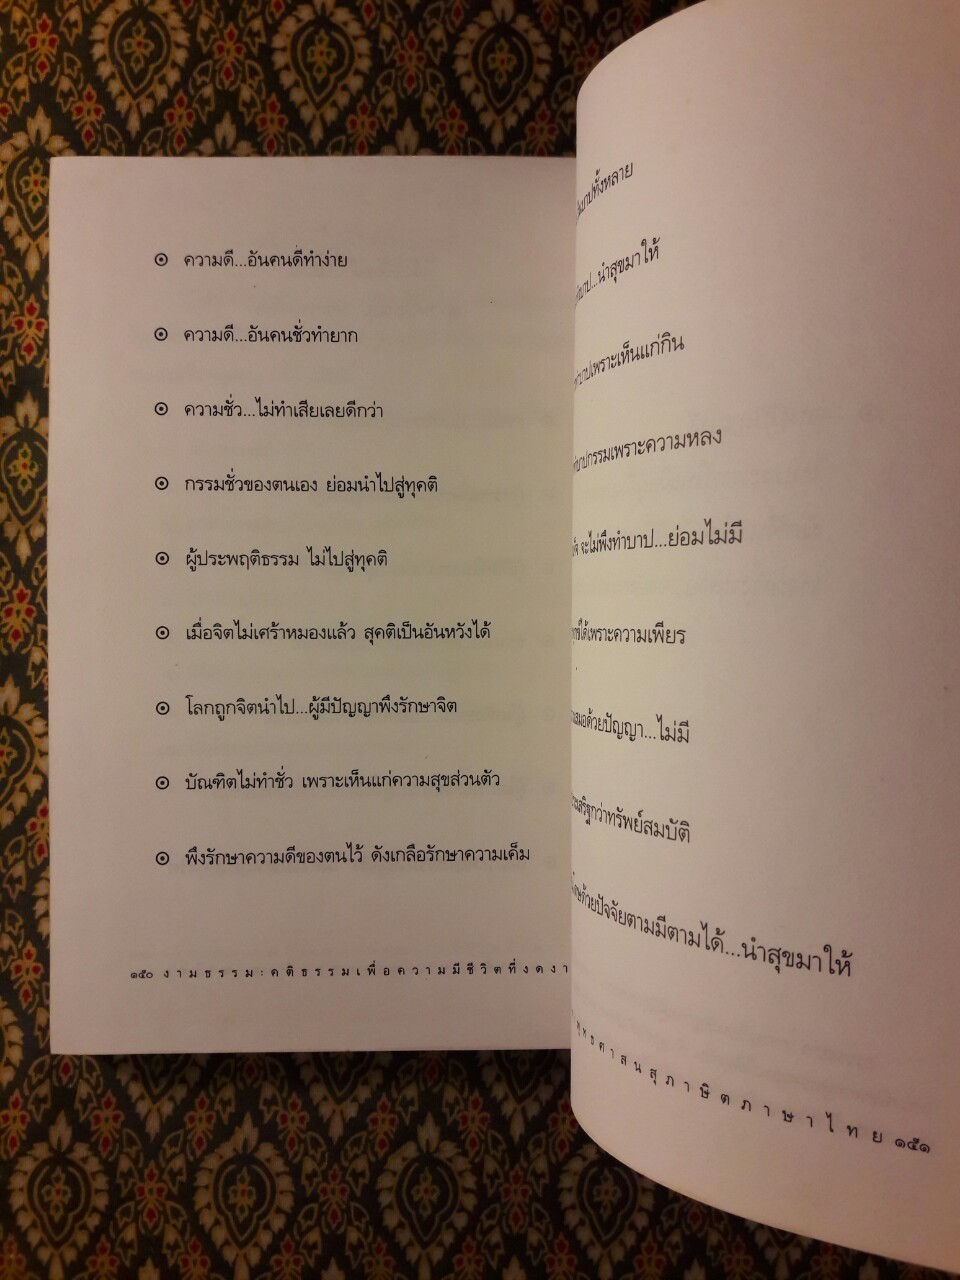 ความดี...อันคนดีทำง่าย
ความดี...อันคนชั่วทำยาก
ความชั่ว...ไม่ทำเสียเลยดีกว่า
กรรมชั่วของตนเอง ย่อมนำไปสู่ทุคติ
ผู้ประพฤติธรรม ไม่ไปสู่ทุคติ
เมื่อจิตไม่เศร้าหมองแล้ว สุคติเป็นอันหวังได้
โลกถูกจิตนำไป...ผู้มีปัญญาพึงรักษาจิต
บัณฑิตไม่ทำชั่ว เพราะเห็นแก่ความสุขส่วนตัว
พึงรักษาความดีของตนไว้ ดังเกลือรักษาความเค็ม
๑๕๐ งามธรรม:คติธรรมเพื่อความมีชีวิตที่งดงา
บาปทั้งหลาย
บาป...นำสุขมาให้
บาปเพราะเห็นแก่กิน
บาปกรรมเพราะความหลง
จะไม่พึงทำบาป...ย่อมไม่มี
ได้เพราะความเพียร
เสมอด้วยปัญญา...ไม่มี
ประเสริฐกว่าทรัพย์สมบัติ
ด้วยปัจจัยตามมีตามได้...นำสุขมาให้
พุทธศาสนสุภาษิตภาษาไทย ๑๕๑